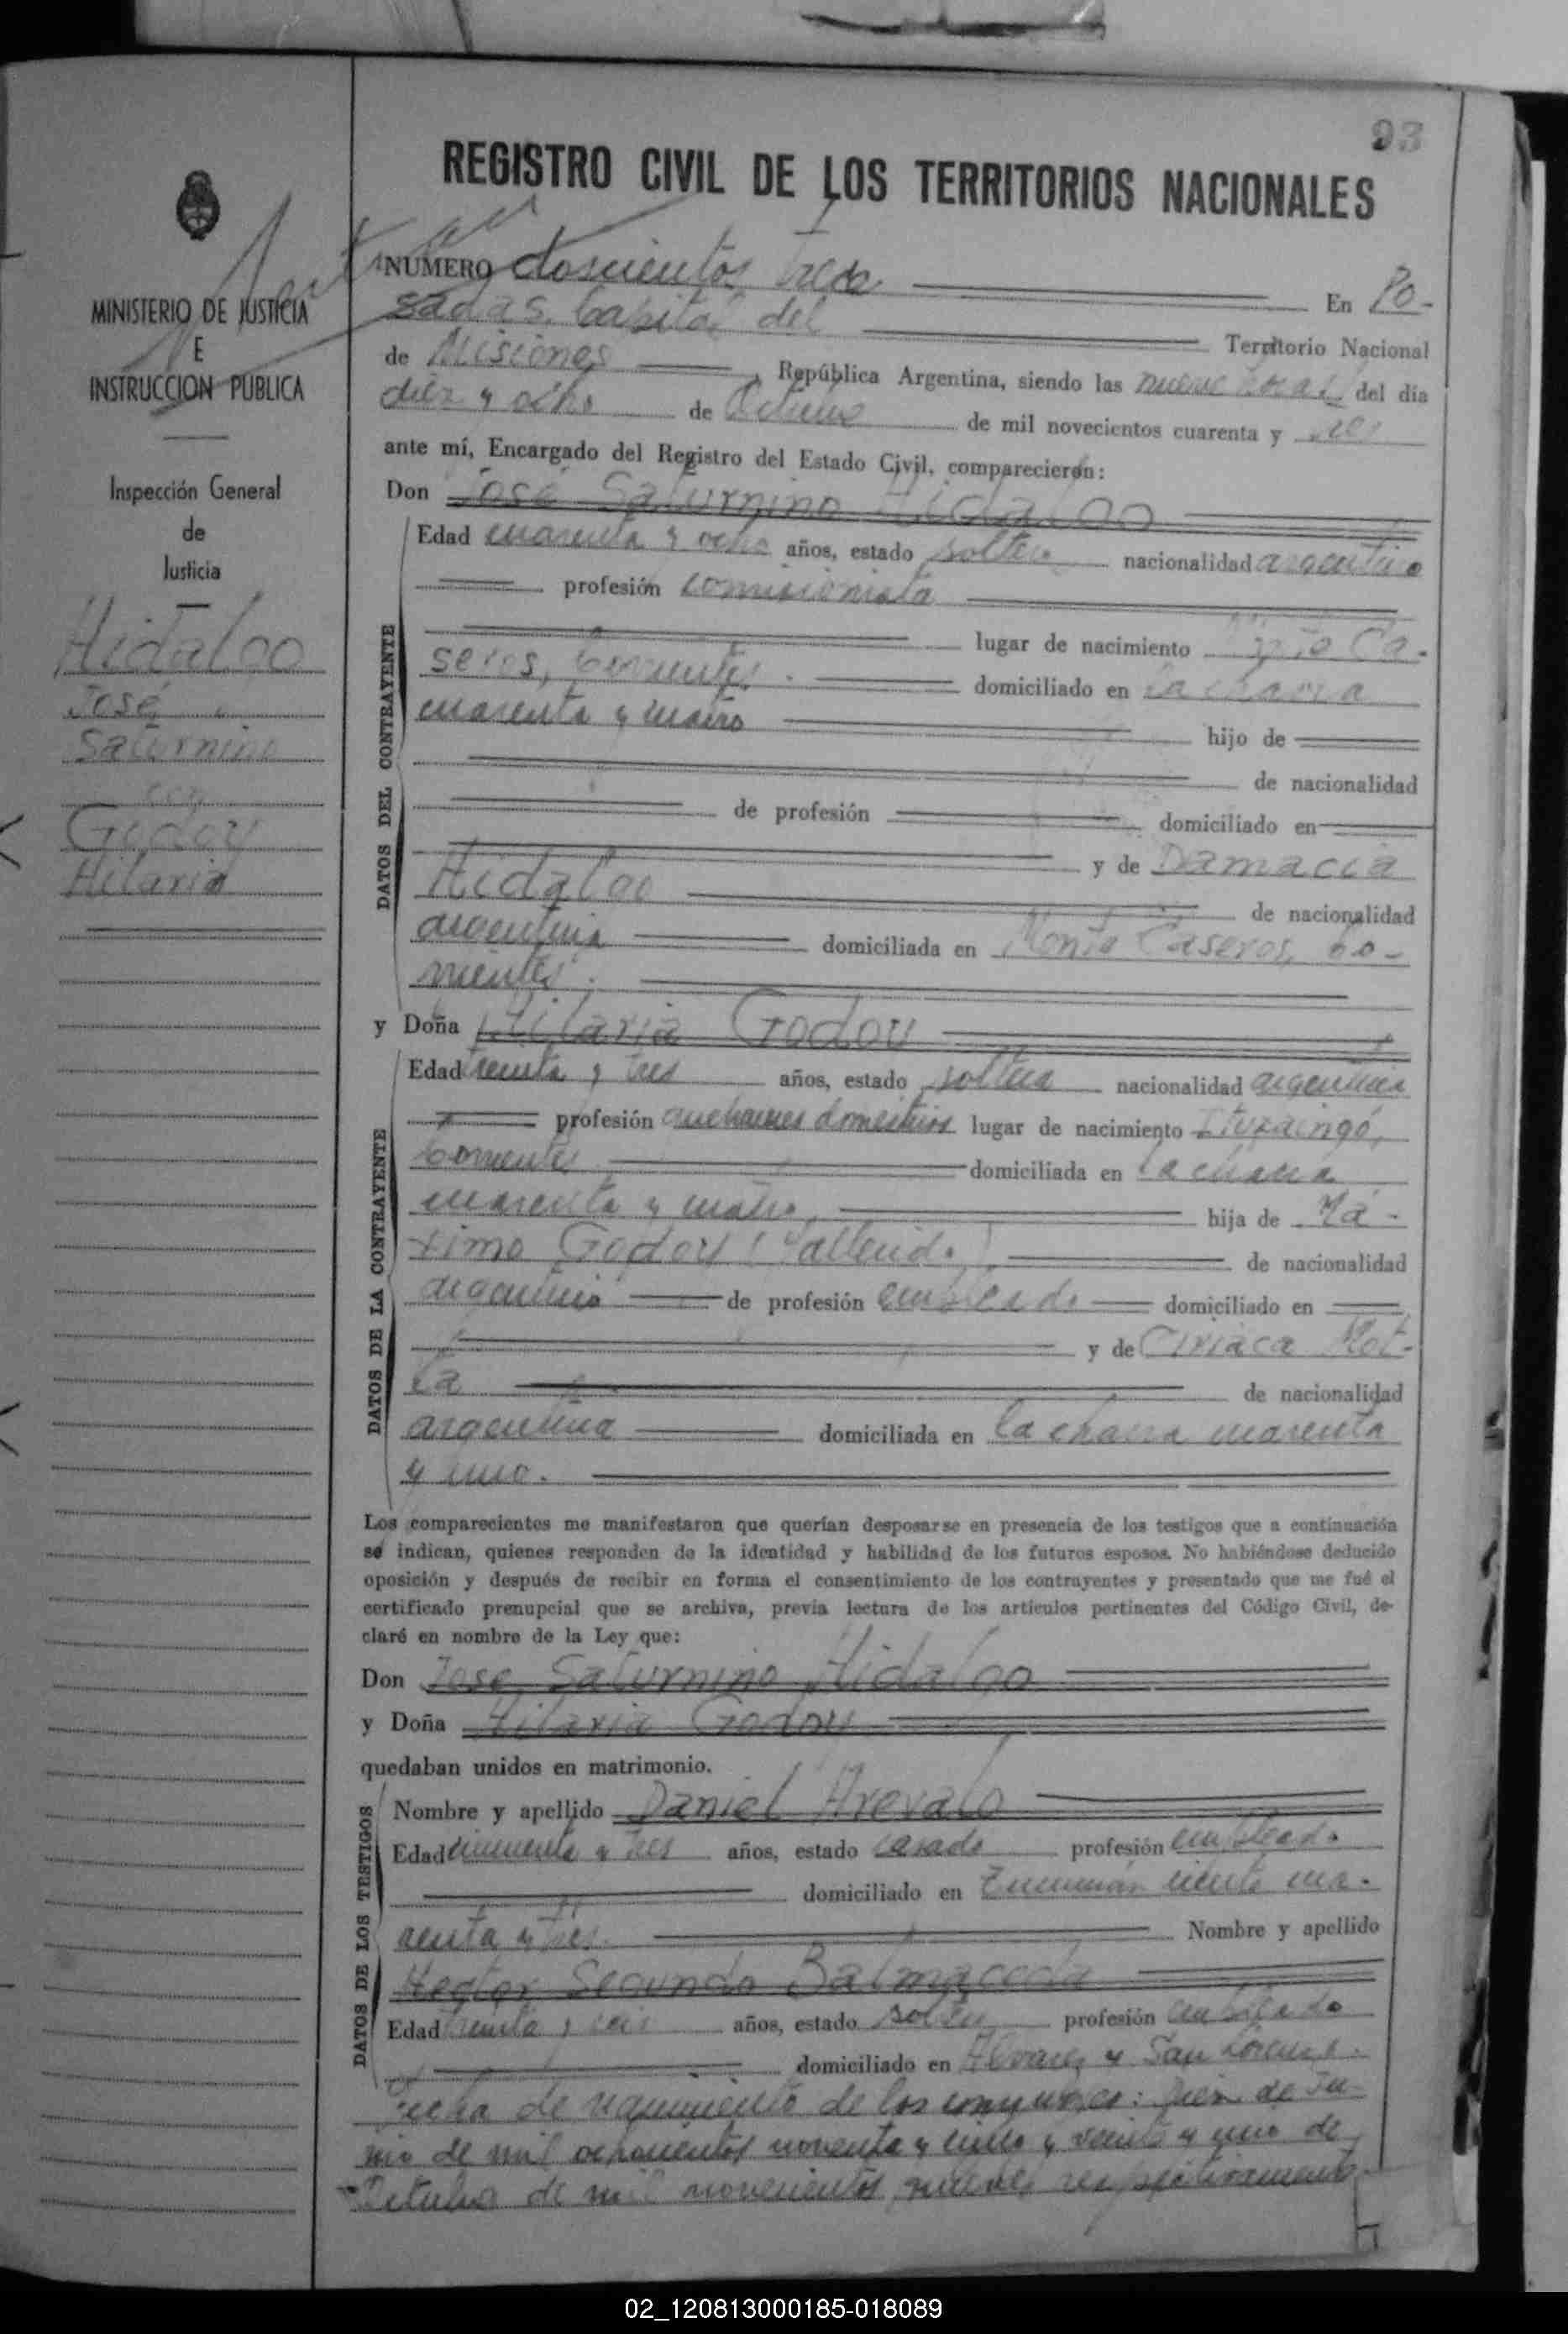 93
REGISTRO CIVIL DE LOS TERRITORIOS NACIONALES
MINISTERIO DE JUSTICIA
E
INSTRUCCION PUBLICA
Inspección General
de
Justicia
Hidalgo
José
Saturnino
con
Godoy
Hilaria
NUMERO doscientos trece En Po-
sadas, Capital del Territorio Nacional
de Misiones, República Argentina, siendo las nueve horas del día
diez y ocho de Octubre de mil novecientos cuarenta y tres
ante mí, Encargado del Registro del Estado Civil, comparecieron:
Don José Saturnino Hidalgo
DATOS DEL CONTRAYENTE
Edad cuarenta y ocho años, estado soltero nacionalidad argentino
profesión comisionista
lugar de nacimiento Monte Ca-
seros, Corrientes. domiciliado en la chacra
cuarenta y cuatro hijo de
de nacionalidad
de profesión domiciliado en
y de Damacia
Hidalgo de nacionalidad
argentina domiciliada en Monte Caseros, Co-
rrientes.
y Doña Hilaria Godoy
DATOS DE LA CONTRAYENTE
Edad treinta y tres años, estado soltera nacionalidad argentina
profesión quehaceres domésticos lugar de nacimiento Ituzaingó,
Corrientes domiciliada en la chacra
cuarenta y cuatro, hija de Má-
ximo Godoy (fallecido) de nacionalidad
argentino de profesión empleado domiciliado en
y de Ciriaca Mot-
ta de nacionalidad
argentina domiciliada en la chacra cuarenta
y uno.
Los comparecientes me manifestaron que querían desposarse en presencia de los testigos que a continuación
se indican, quienes responden de la identidad y habilidad de los futuros esposos. No habiéndose deducido
oposición y después de recibir en forma el consentimiento de los contrayentes y presentado que me fué el
certificado prenupcial que se archiva, previa lectura de los artículos pertinentes del Código Civil, de-
claré en nombre de la Ley que:
Don José Saturnino Hidalgo
y Doña Hilaria Godoy
quedaban unidos en matrimonio.
DATOS DE LOS TESTIGOS
Nombre y apellido Daniel Arevalo
Edad cincuenta y tres años, estado casado profesión empleado
domiciliado en Tucumán ciento cua-
renta y tres. Nombre y apellido
Hector Segundo Balmaceda
Edad treinta y seis años, estado soltero profesión empleado
domiciliado en Alvarez y San Lorenzo.
Fecha de nacimiento de los conyuges: Diez de Ju-
nio de mil ochocientos noventa y cinco y veinte y uno de
Octubre de mil novecientos nueve, respectivamente
02_120813000185-018089